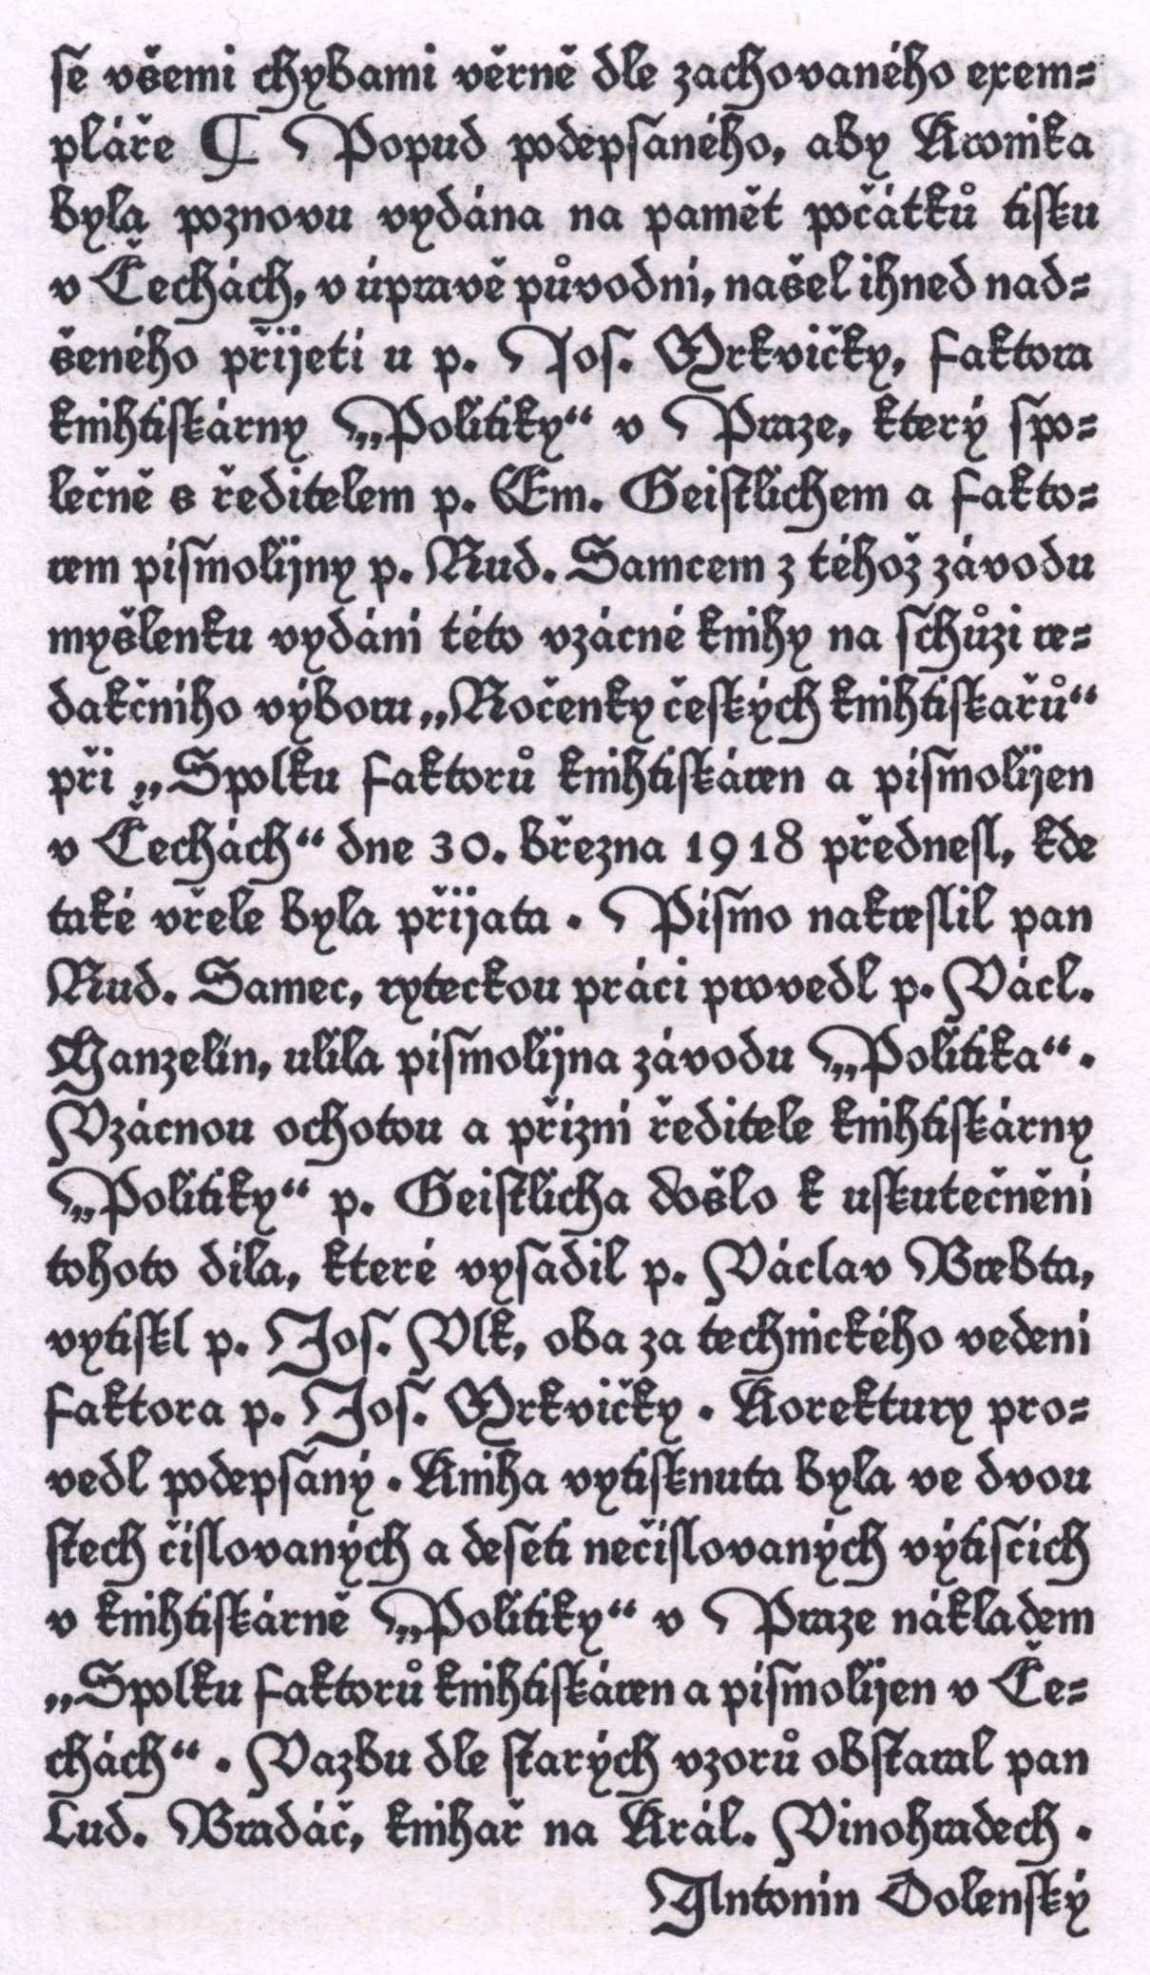 se všemi chybami věrně dle zachovaného exem=
pláře ¶ Popud podepsaného, aby Kronika
byla poznovu vydána na pamět počátků tisku
v Čechách, v úpravě původní, našel ihned nad=
šeného přijetí u p. Jos. Mrkvičky, faktora
knihtiskárny „Politiky“ v Praze, který spo=
lečně s ředitelem p. Em. Geistlichem a fakto=
rem písmolijny p. Rud. Samcem z téhož závodu
myšlenku vydání této vzácné knihy na schůzi re=
dakčního výboru „Ročenky českých knihtiskařů“
při „Spolku faktorů knihtiskáren a písmolijen
v Čechách“ dne 30. března 1918 přednesl, kde
také vřele byla přijata · Písmo nakreslil pan
Rud. Samec, ryteckou práci provedl p. Václ.
Hanzelín, ulila písmolijna závodu „Politika“ ·
Vzácnou ochotou a přízní ředitele knihtiskárny
„Politiky“ p. Geistlicha došlo k uskutečnění
tohoto díla, které vysadil p. Václav Vrebta,
vytiskl p. Jos. Vlk, oba za technického vedení
faktora p. Jos. Mrkvičky · Korektury pro=
vedl podepsaný · Kniha vytisknuta byla ve dvou
stech číslovaných a deseti nečíslovaných výtiscích
v knihtiskárně „Politiky“ v Praze nákladem
„Spolku faktorů knihtiskáren a písmolijen v Če=
chách“ · Vazbu dle starých vzorů obstaral pan
Lud. Bradáč, knihař na Král. Vinohradech ·
Antonín Dolenský